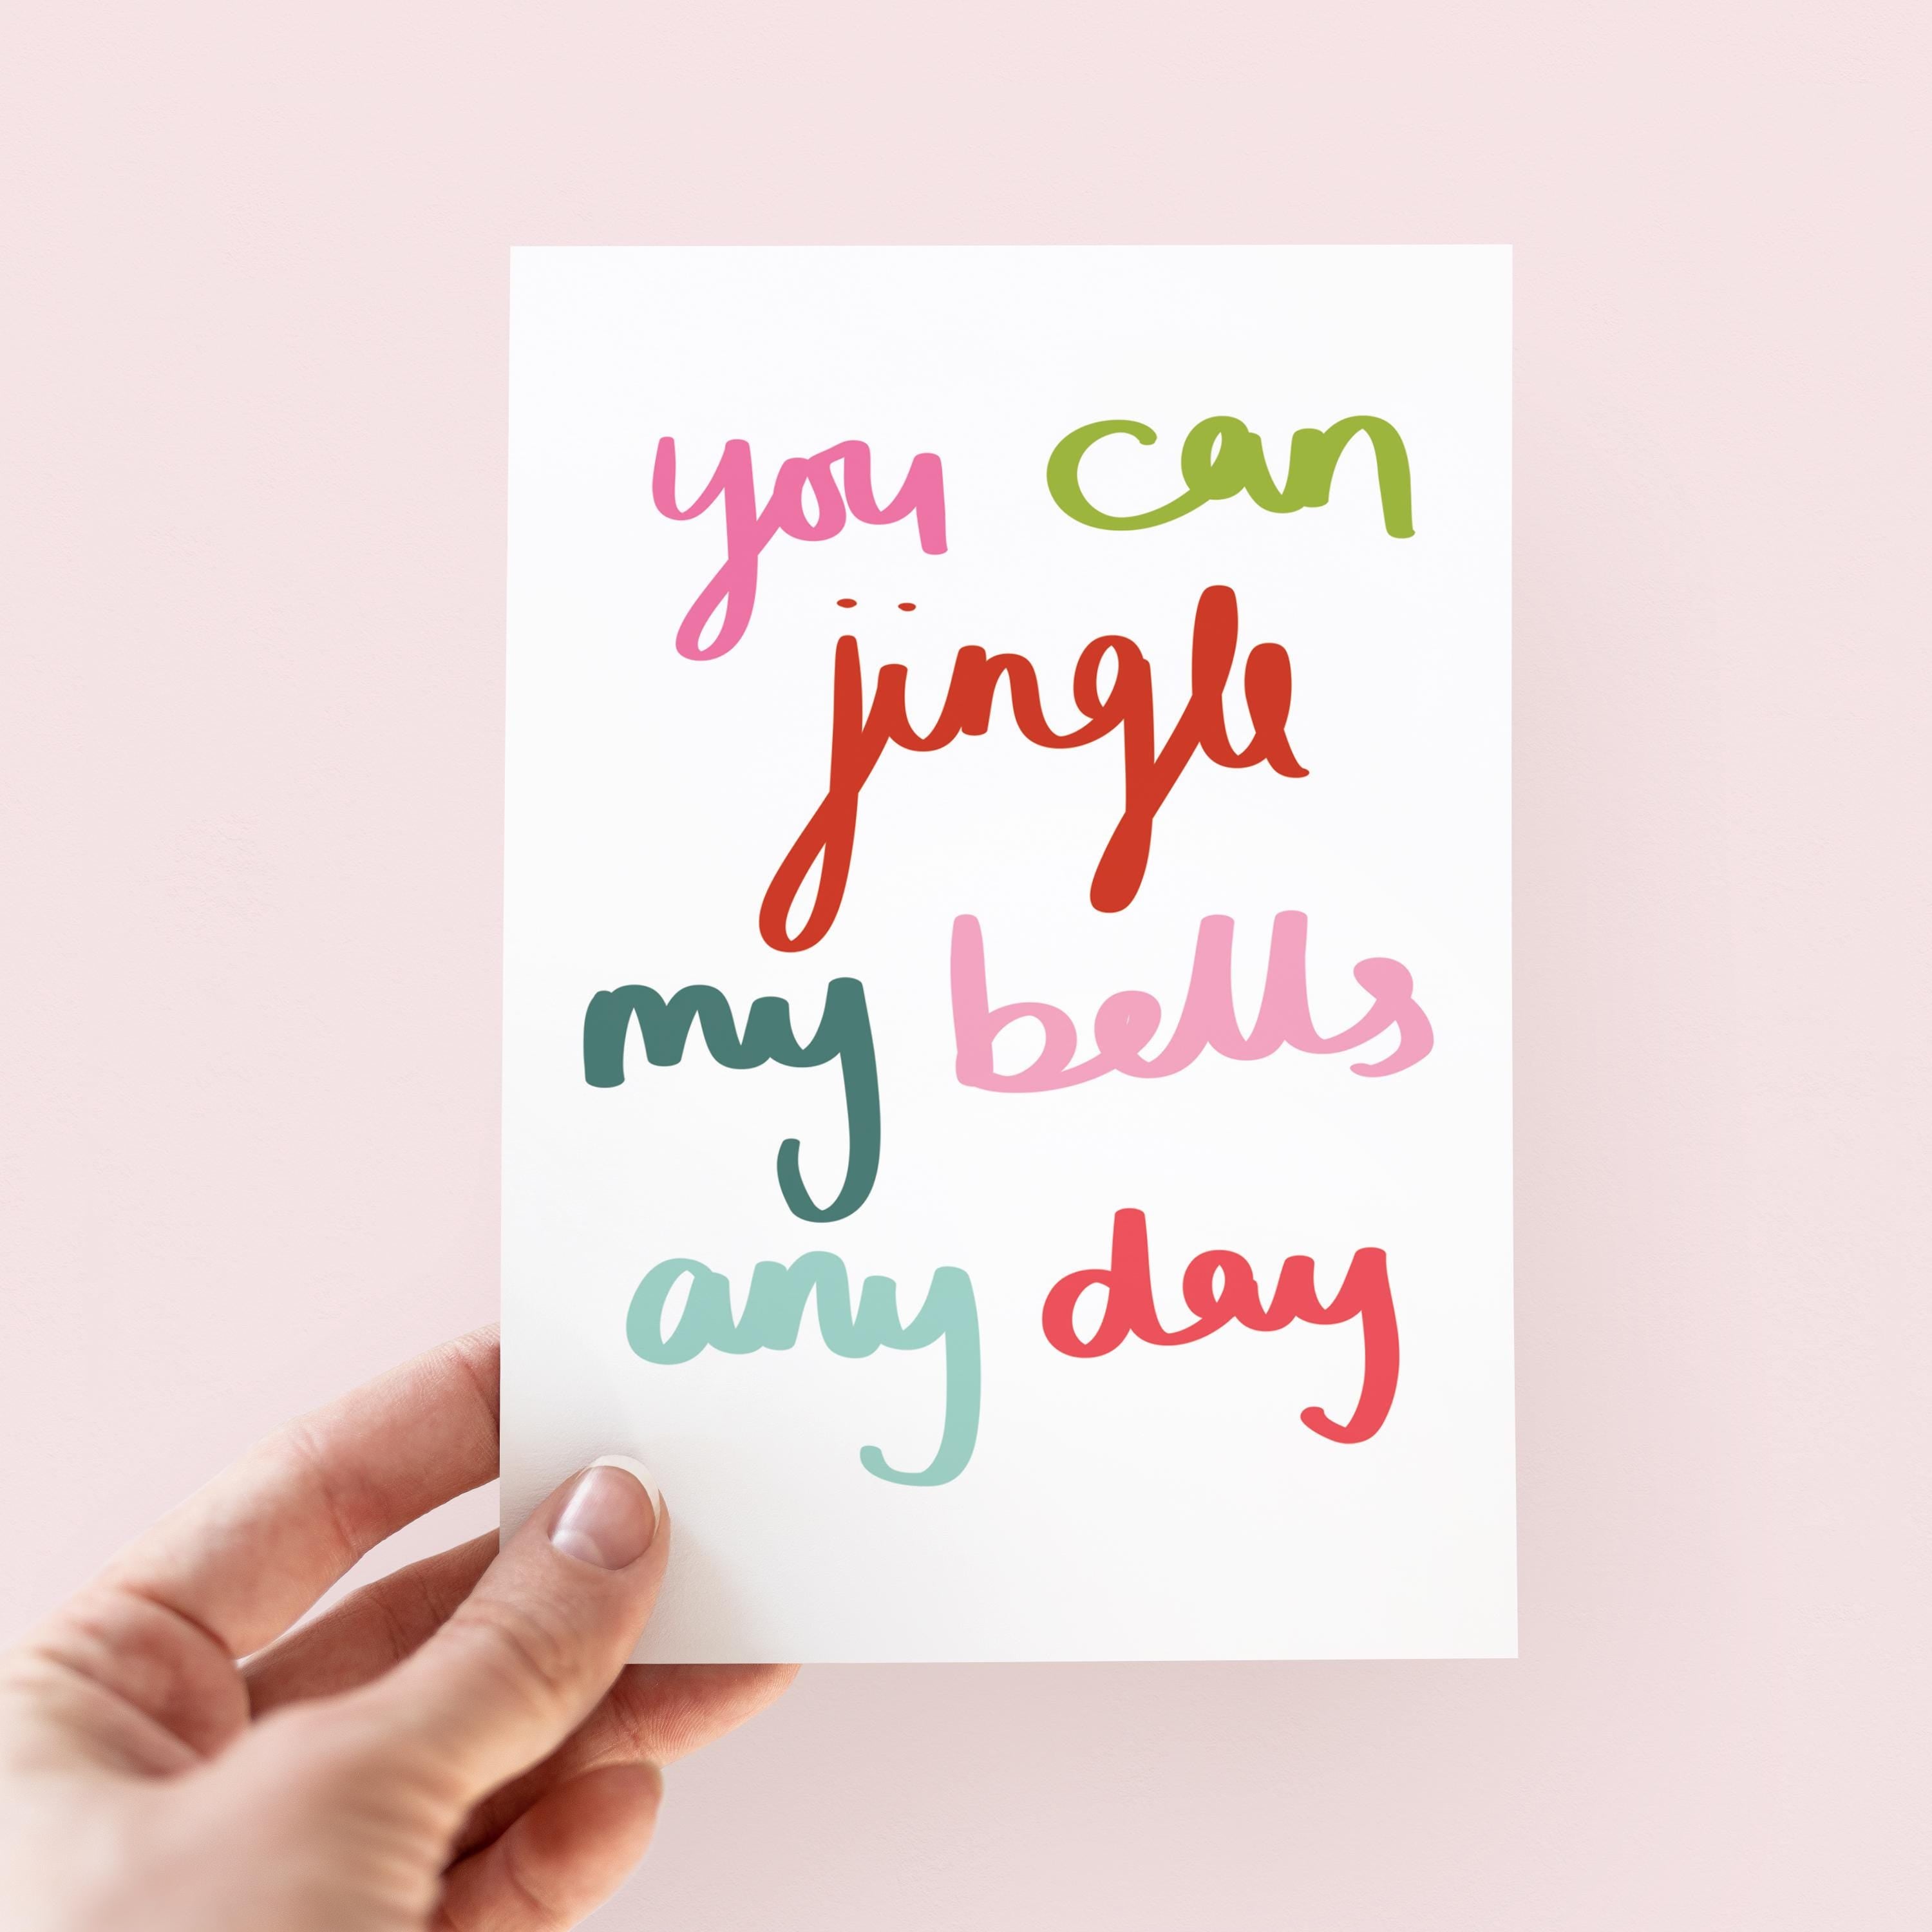 you can
jingle
my bells
any day